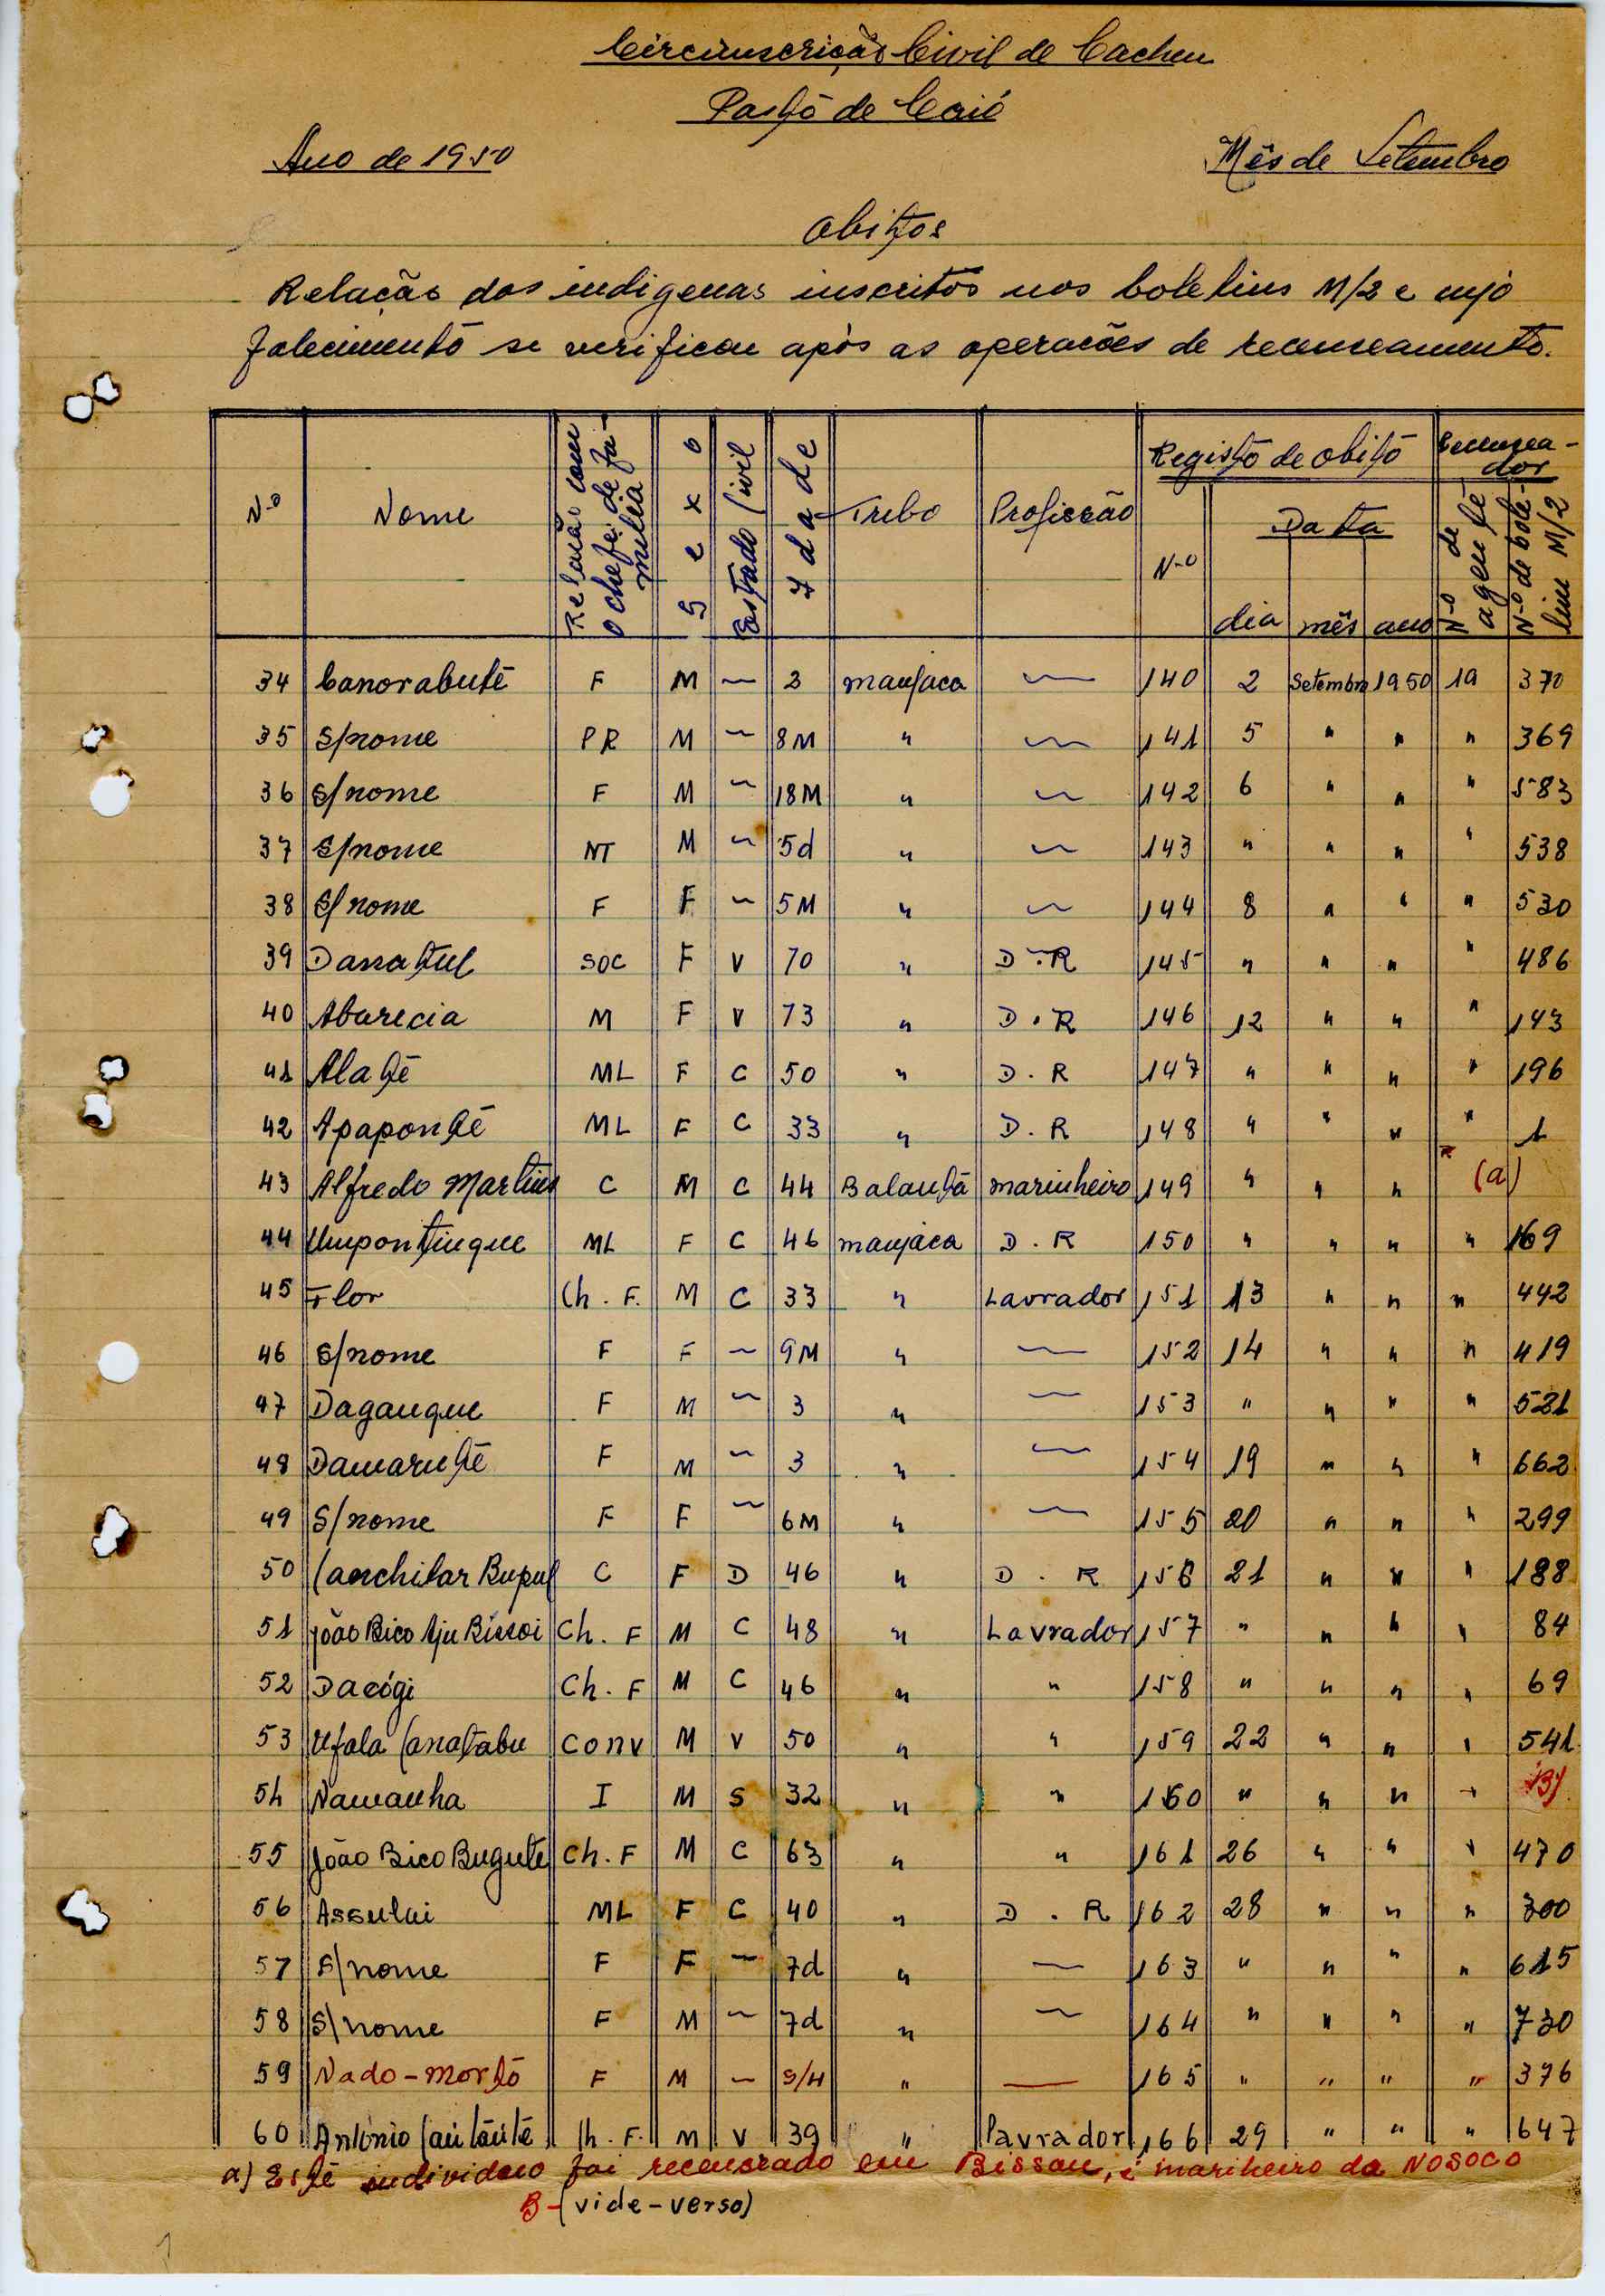 Circunscrição Civil de Cacheu
Posto de Caió
Ano de 1950 Mês de Setembro
Obitos
Relação dos indigenas inscritos nos boletins M/2 e cujo
falecimento se verificou após as operações de recenseamento.
Nº Nome Relação com o chefe de familia Sexo Estado Civil Idade Tribo Proficcão Registo de obito Recenseador
Nº Data Nº de agente Nº do boletim M/2
dia mês ano
34 Canorabute F M — 3 manjaca — 140 2 Setembro 1950 19 370
35 S/nome PR M — 8M " — 141 5 " " " 369
36 S/nome F M — 18M " — 142 6 " " " 583
37 S/nome NT M — 5d " — 143 " " " " 538
38 S/nome F F — 5M " — 144 8 " " " 530
39 Danatul soc F V 70 " D.R 145 " " " " 486
40 Abarecia M F V 73 " D.R 146 12 " " " 143
41 Alatê ML F C 50 " D.R 147 " " " " 196
42 Apapontê ML F C 33 " D.R 148 " " " " 1
43 Alfredo Martins C M C 44 Balanta marinheiro 149 " " " (a)
44 Umpontingue ML F C 46 manjaca D.R 150 " " " " 169
45 Flor Ch. F. M C 33 " Lavrador 151 13 " " " 442
46 S/nome F F — 9M " — 152 14 " " " 419
47 Dagangue F M — 3 " — 153 " " " " 521
48 Damarutê F M — 3 " — 154 19 " " " 662
49 S/nome F F — 6M " — 155 20 " " " 299
50 Canchilar Bupul C F D 46 " D.R 156 21 " " " 188
51 João Bico Aju Bissoi Ch. F M C 48 " Lavrador 157 " " " " 84
52 Dacógi Ch. F M C 46 " " 158 " " " " 69
53 Ufala Canatabu Conv M V 50 " " 159 22 " " " 541
54 Namanha I M S 32 " " 160 " " " " B)
55 João Bico Bugute Ch. F M C 63 " " 161 26 " " " 470
56 Assulai ML F C 40 " D.R 162 28 " " " 300
57 S/nome F F — 7d " — 163 " " " " 615
58 S/nome F M — 7d " — 164 " " " " 730
59 Nado-morto F M — S/H " — 165 " " " " 376
60 António Caitântê Ch. F. M V 39 " Lavrador 166 29 " " " 647
a) Este individuo foi recenseado em Bissau, é mariheiro da NOSOCO
B-(vide-verso)